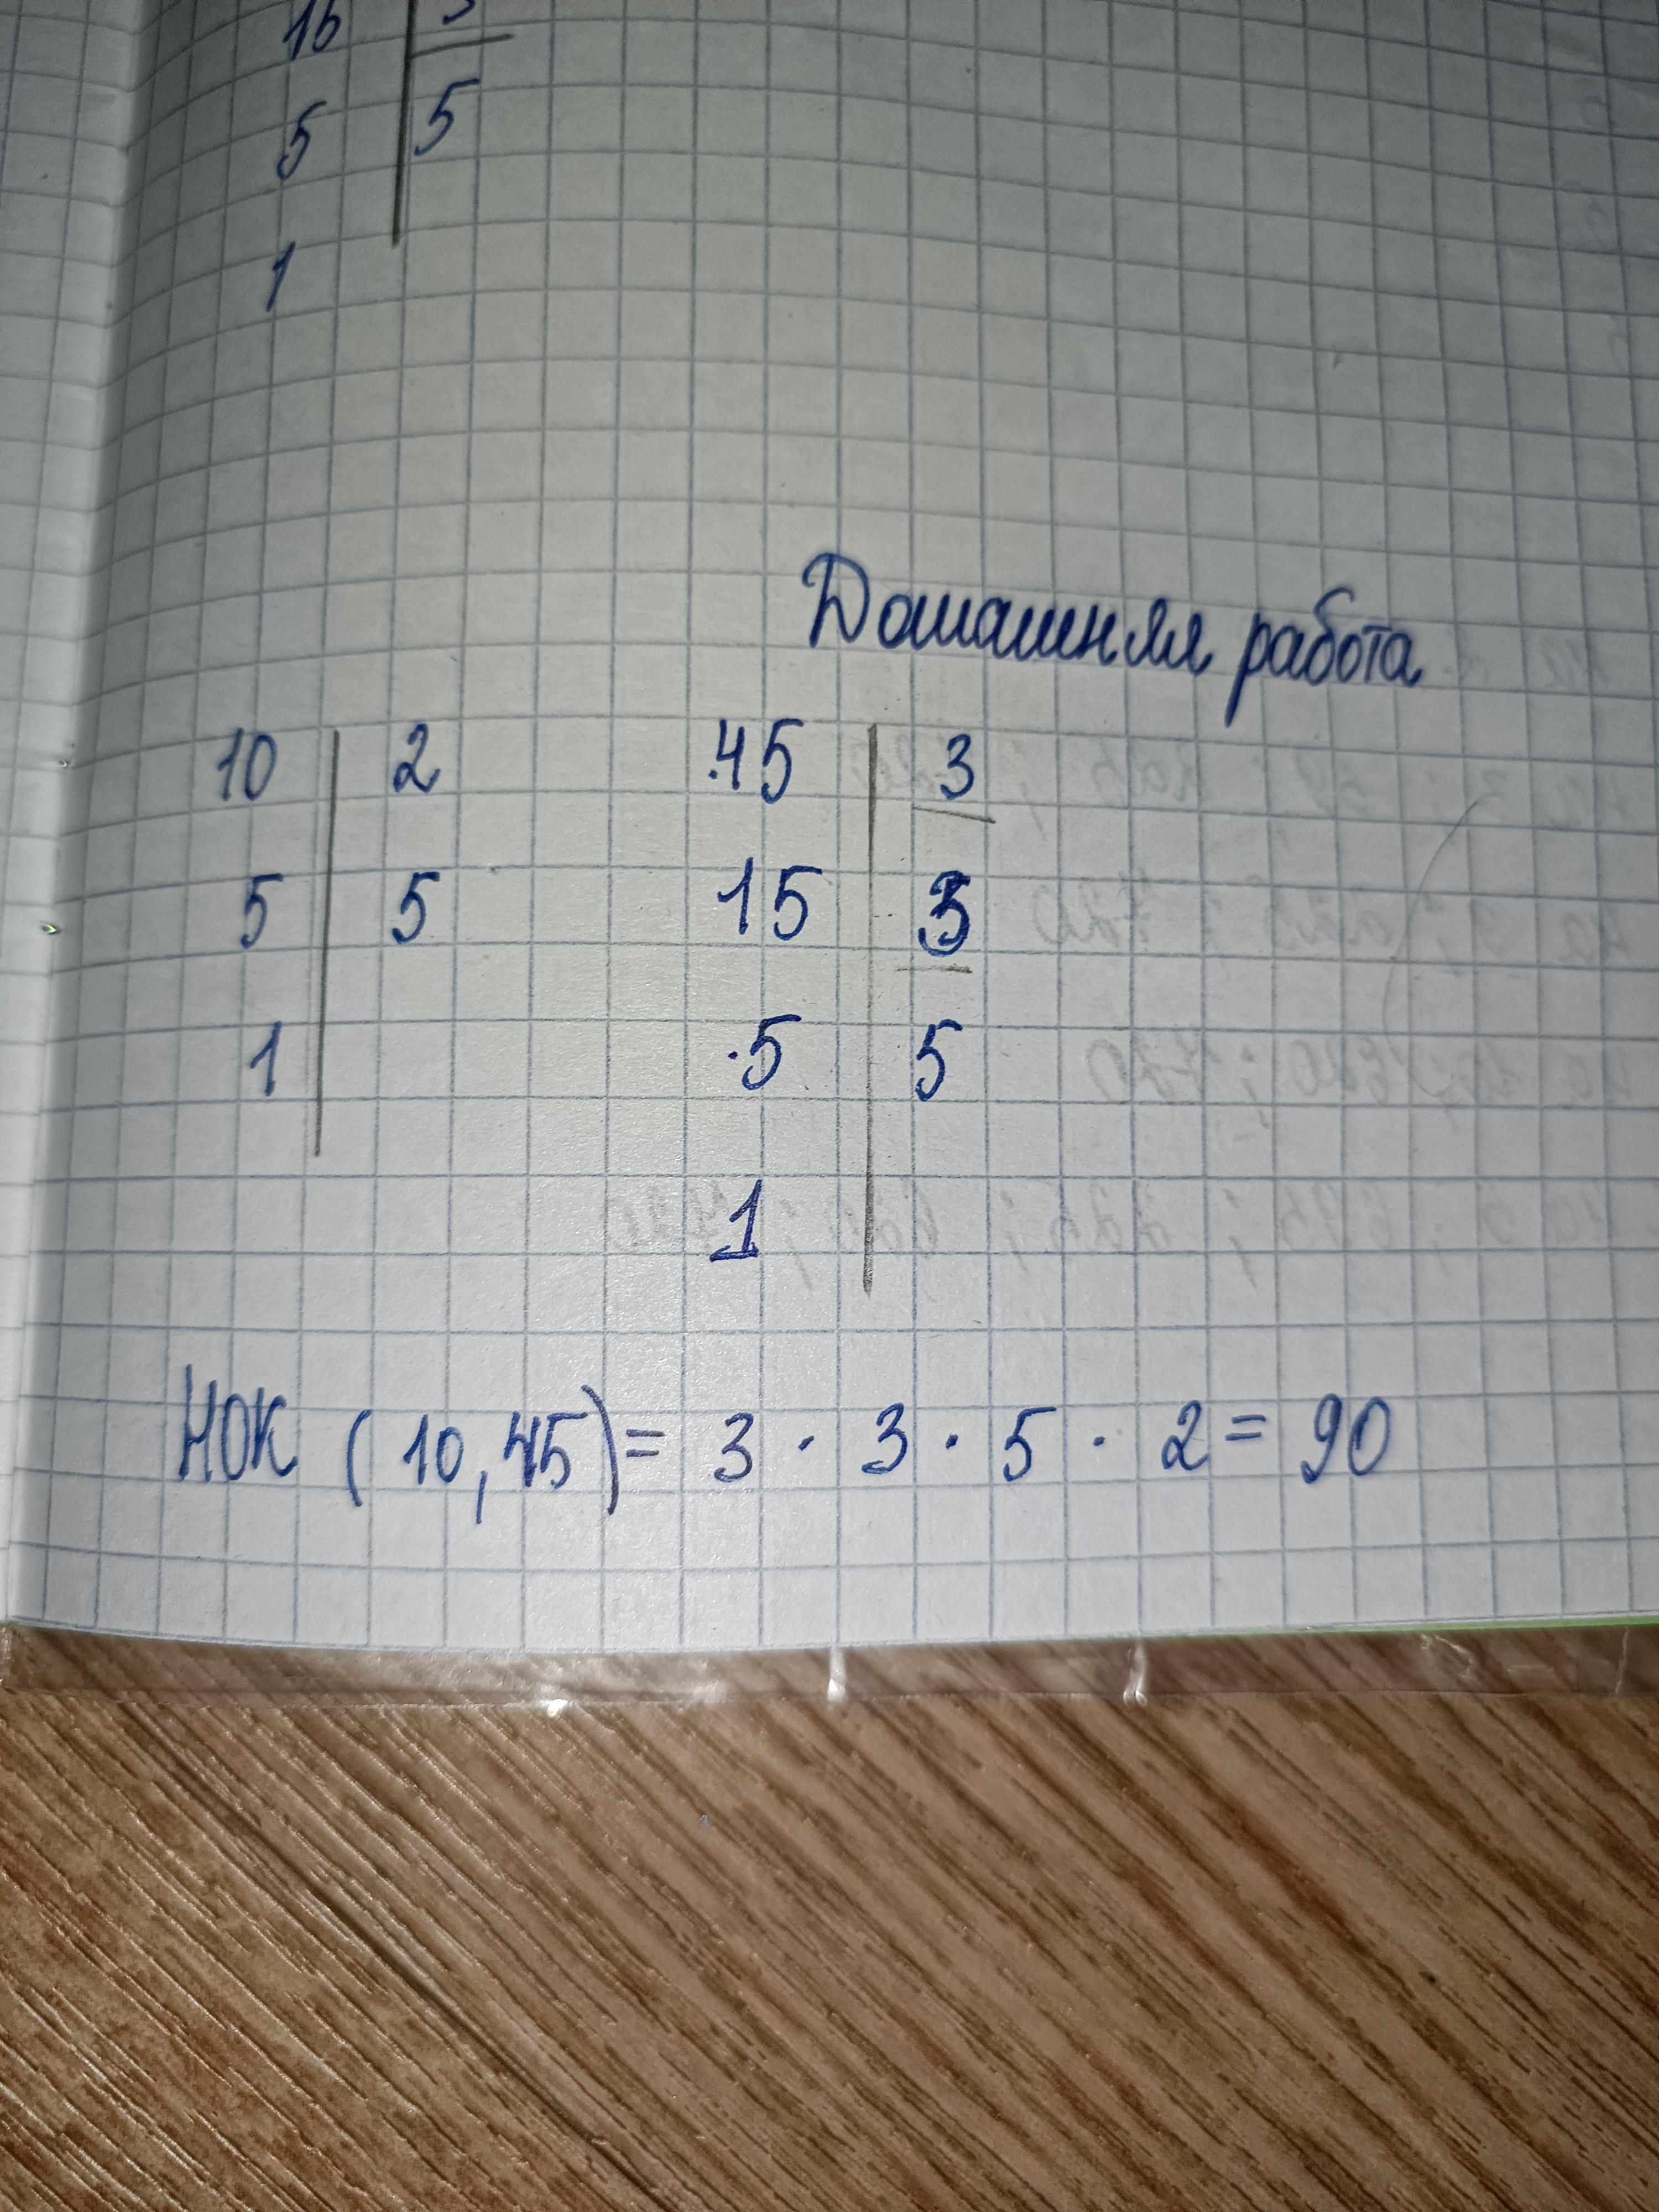 5 | 5
1
Домашняя работа
10 | 2 45 | 3
5 | 5 15 | 3
1 | 5 | 5
1
НОК (10,45) = 3 · 3 · 5 · 2 = 90